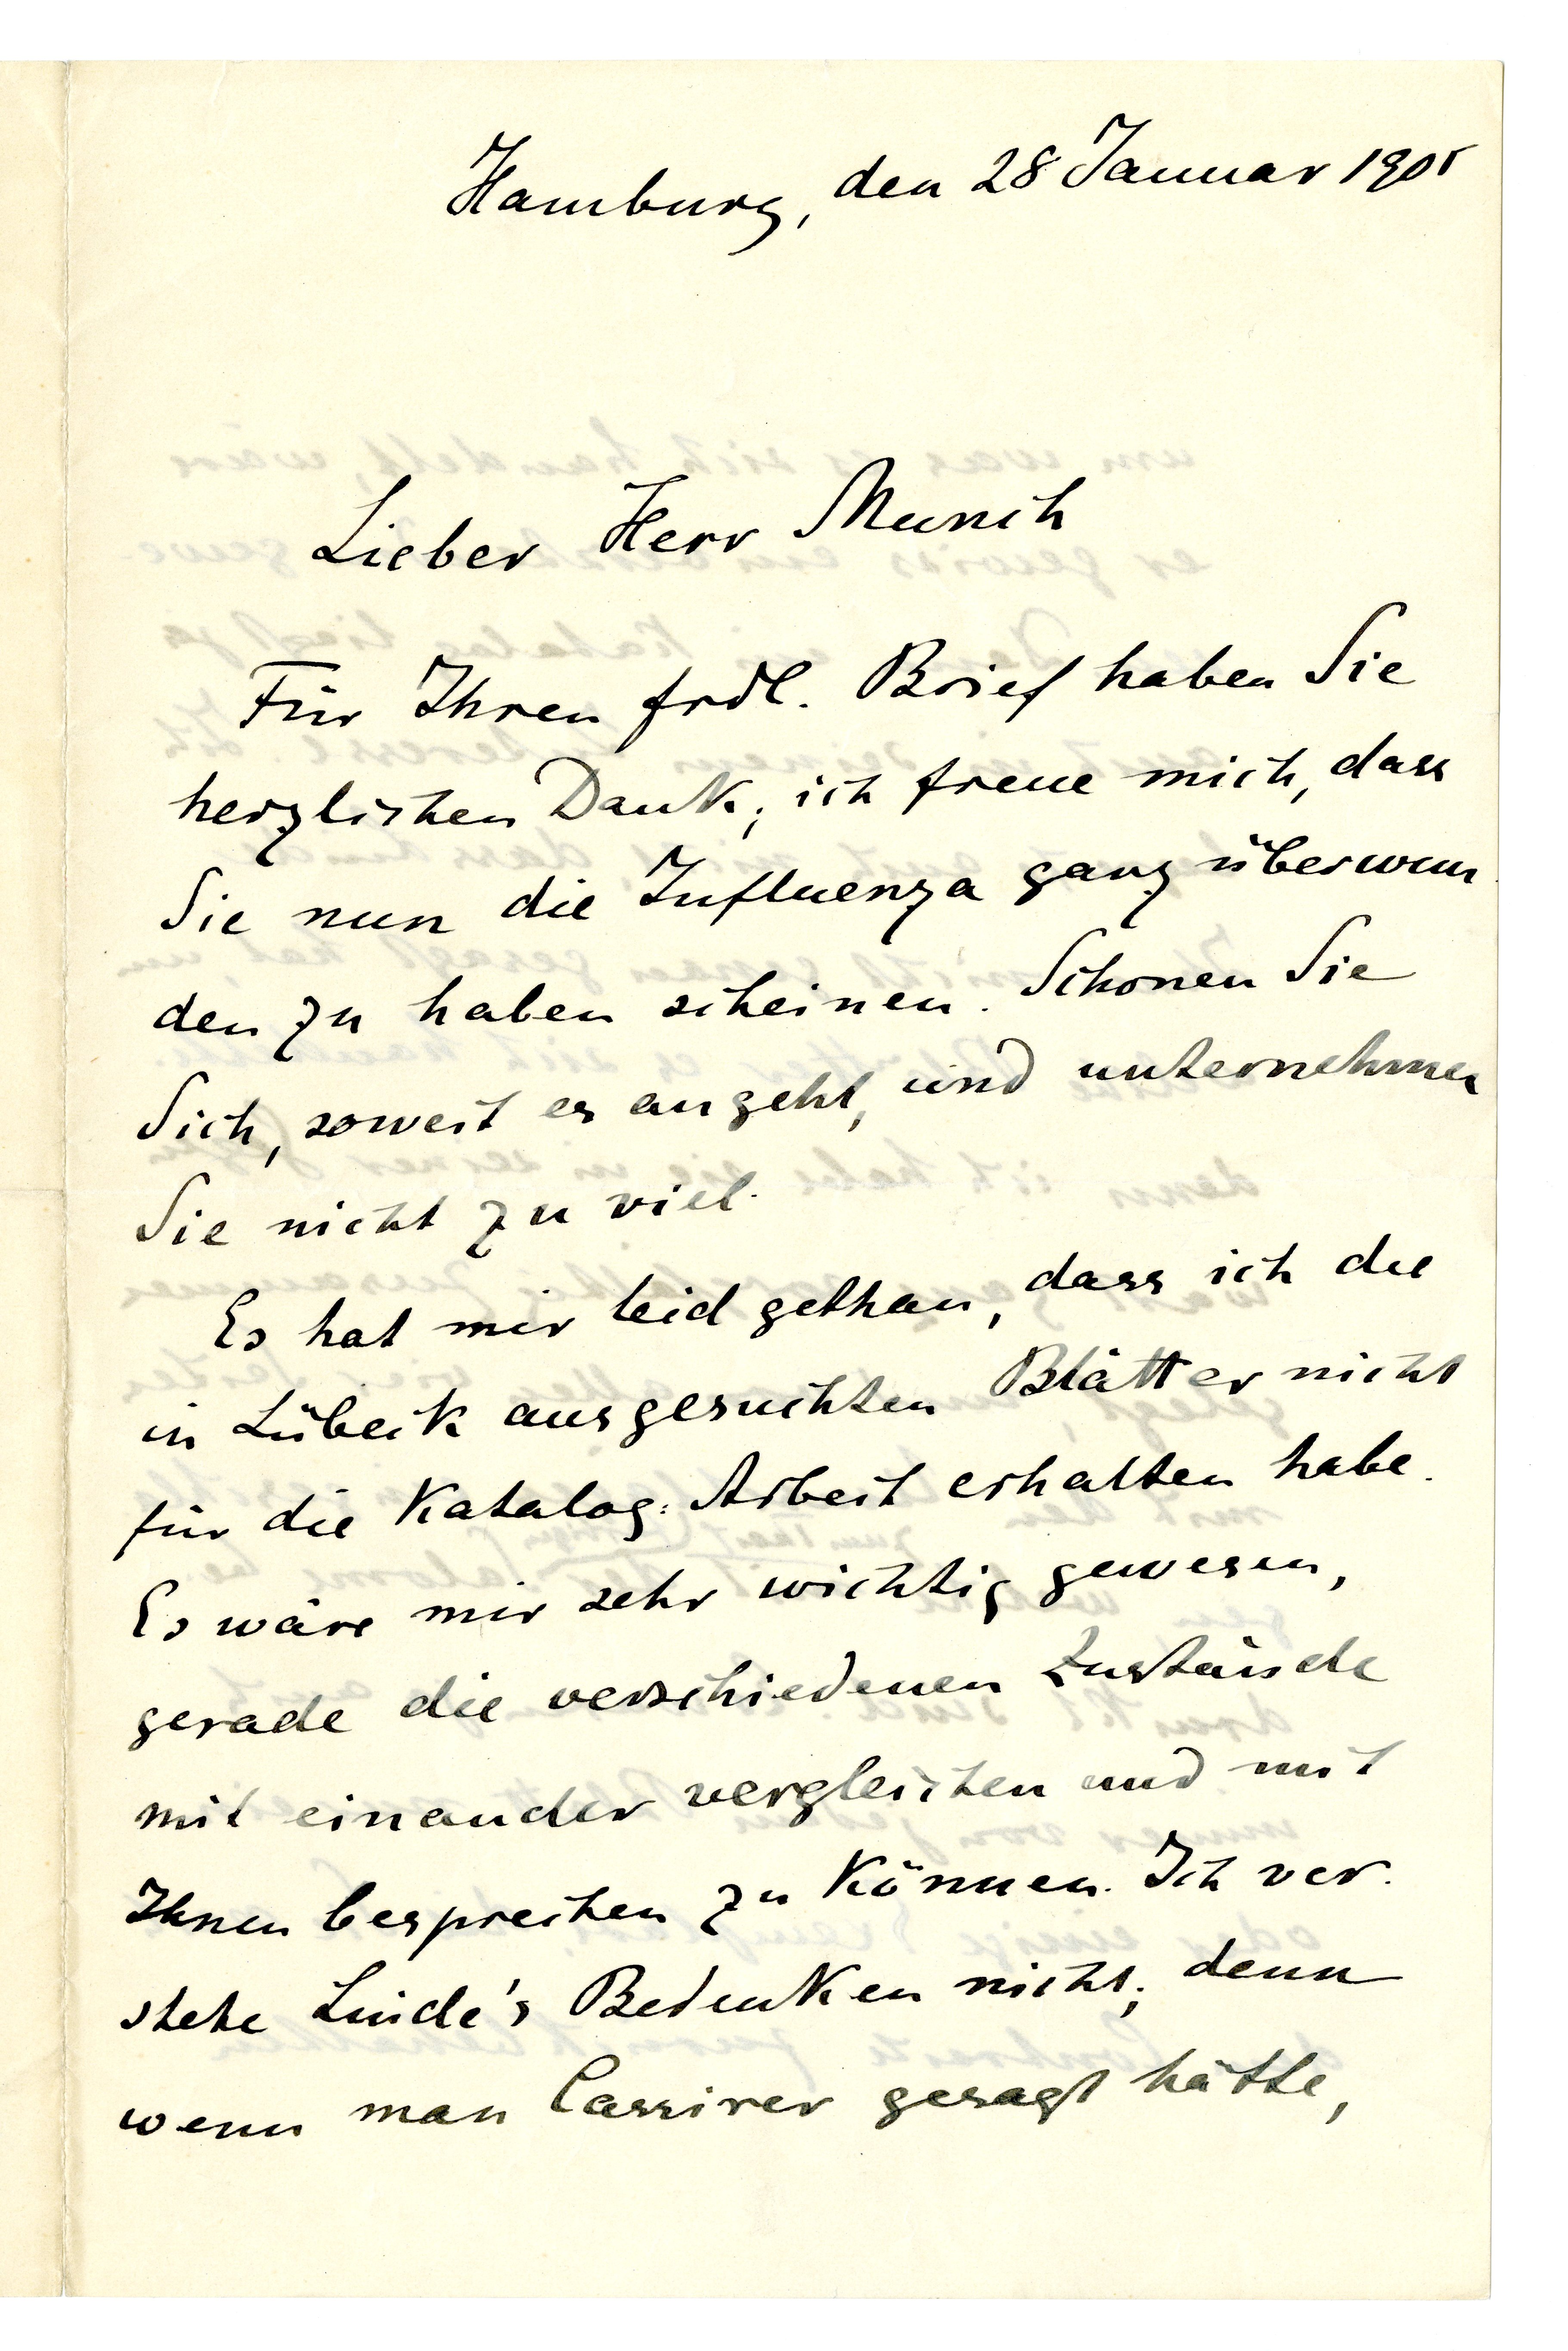 Hamburg, den 28 Januar 1905
Lieber Herr Munch
Für Ihren frdl. Brief haben Sie
herzlichen Dank; ich freue mich, dass
Sie nun die Influenza ganz überwun
den zu haben scheinen. Schonen Sie
Sich, soweit es angeht, und unternehmen
Sie nicht zu viel.
Es hat mir leid gethan, dass ich die
in Lübeck ausgesuchten Blätter nicht
für die Katalog: Arbeit erhalten habe.
Es wäre mir sehr wichtig gewesen,
gerade die verschiedenen Zustände
mit einander vergleichen und mit
Ihnen besprechen zu können. Ich ver.
stehe Linde's Bedenken nicht; denn
wenn man Cassirer gesagt hätte,